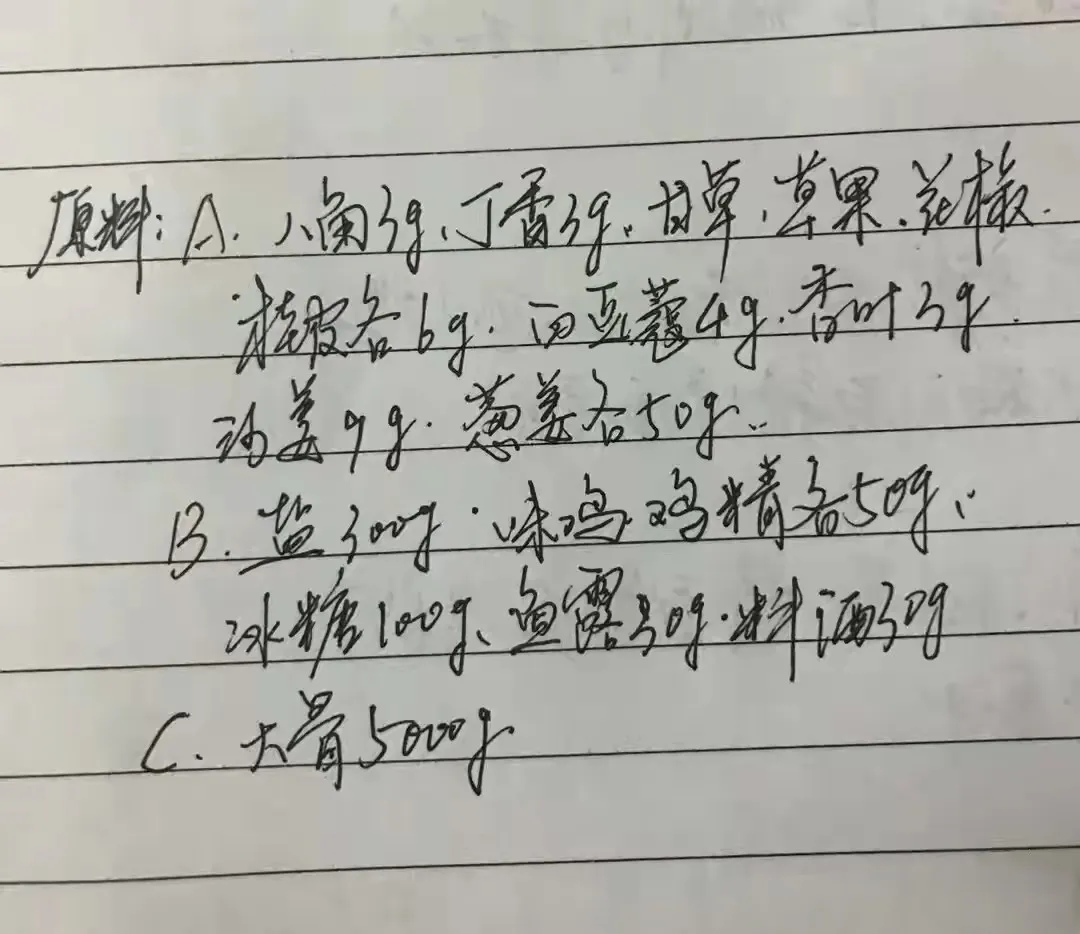 原料：A. 八角3g、丁香3g、甘草、草果、花椒.
桂皮各6g. 白豆蔻4g. 香叶3g.
沙姜9g. 葱姜各50g..
B. 盐300g. 味鸡鸡精各50g、
冰糖100g、鱼露30g. 料酒30g
C. 大骨5000g.